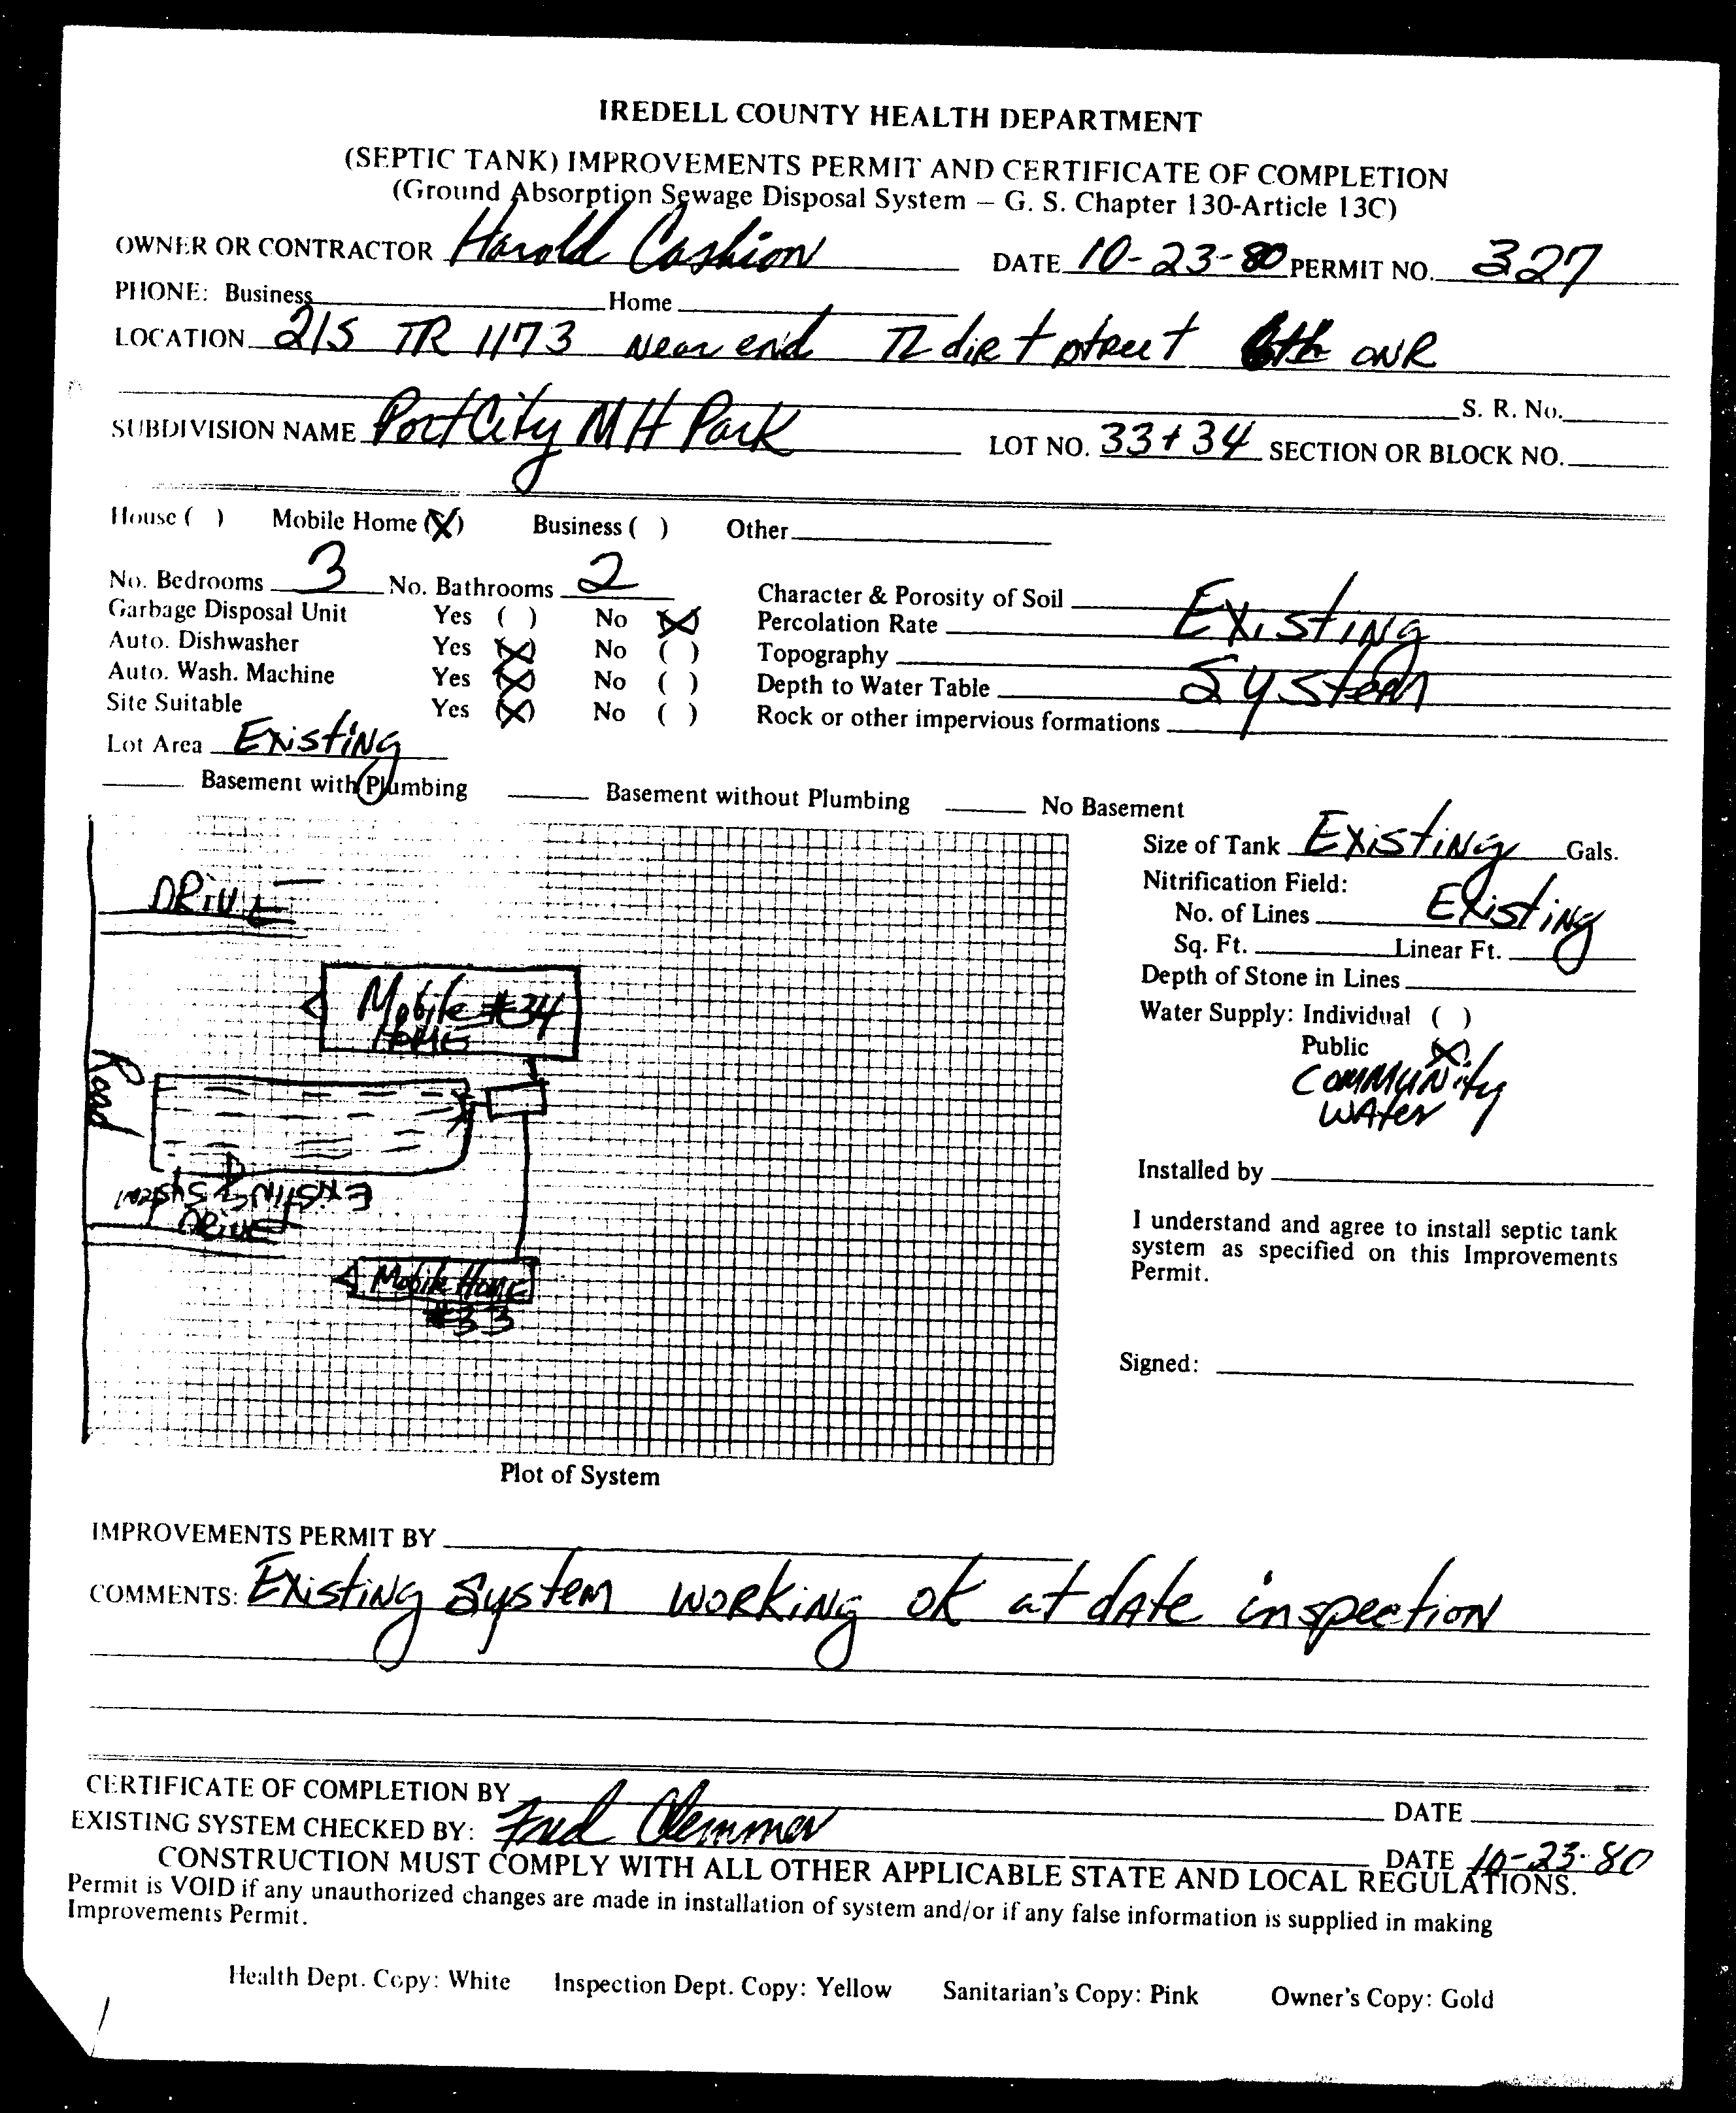 IREDELL COUNTY HEALTH DEPARTMENT
(SEPTIC TANK) IMPROVEMENTS PERMIT AND CERTIFICATE OF COMPLETION
(Ground Absorption Sewage Disposal System – G. S. Chapter 130-Article 13C)
OWNER OR CONTRACTOR Harold Cashion DATE 10-23-80 PERMIT NO. 327
PHONE: Business Home
LOCATION 21S TR 1173 Near end TL dirt street ONR
S. R. No.
SUBDIVISION NAME Port City MH Park LOT NO. 33+34 SECTION OR BLOCK NO.
House ( ) Mobile Home (X) Business ( ) Other
No. Bedrooms 3 No. Bathrooms 2 Character & Porosity of Soil Existing
Garbage Disposal Unit Yes ( ) No (X) Percolation Rate
Auto. Dishwasher Yes (X) No ( ) Topography System
Auto. Wash. Machine Yes (X) No ( ) Depth to Water Table
Site Suitable Yes (X) No ( ) Rock or other impervious formations
Lot Area Existing
Basement with Plumbing Basement without Plumbing No Basement
Size of Tank Existing Gals.
Nitrification Field:
No. of Lines Existing
Sq. Ft. Linear Ft.
Depth of Stone in Lines
Water Supply: Individual ( )
Public (X)
Community
Water
Installed by
I understand and agree to install septic tank
system as specified on this Improvements
Permit.
Signed:
DRIVE
Mobile #34
HOME
Road
Existing System
DRIVE
Mobile Home
#33
Plot of System
IMPROVEMENTS PERMIT BY
COMMENTS: Existing System working ok at date inspection
CERTIFICATE OF COMPLETION BY DATE
EXISTING SYSTEM CHECKED BY: Fred Clemmer DATE 10-23-80
CONSTRUCTION MUST COMPLY WITH ALL OTHER APPLICABLE STATE AND LOCAL REGULATIONS.
Permit is VOID if any unauthorized changes are made in installation of system and/or if any false information is supplied in making
Improvements Permit.
Health Dept. Copy: White Inspection Dept. Copy: Yellow Sanitarian's Copy: Pink Owner's Copy: Gold